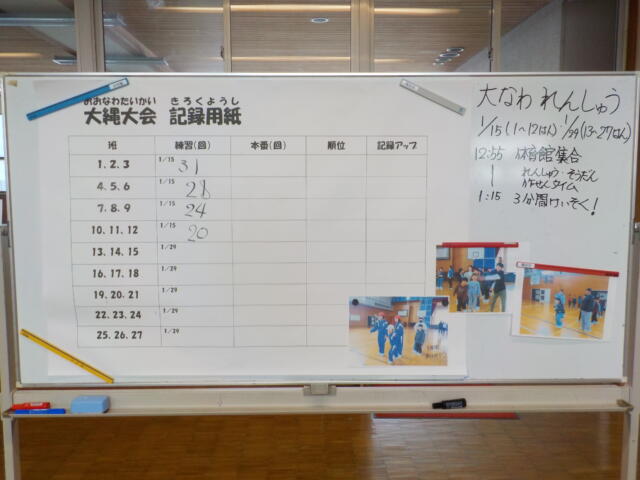 おおなわたいかい きろくようし
大縄大会 記録用紙
班 練習(回) 本番(回) 順位 記録アップ
1. 2. 3 1/15 31
4. 5. 6 1/15 28
7. 8. 9 1/15 24
10. 11. 12 1/15 20
13. 14. 15 1/29
16. 17. 18 1/29
19. 20. 21 1/29
22. 23. 24 1/29
25. 26. 27 1/29
大なわ れんしゅう
1/15(1〜12はん) 1/29(13〜27はん)
12:55 体育館集合
れんしゅう・そうだん
作せんタイム
1:15 3分間けいぞく!